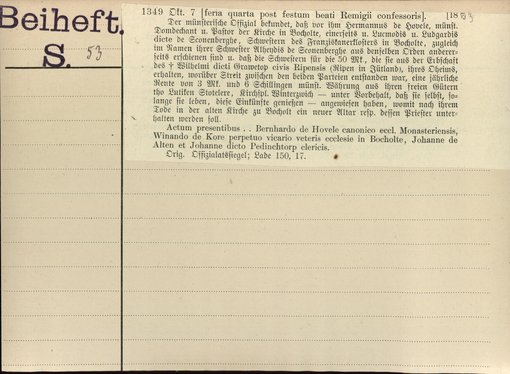 Beiheft.
S. 53
1349 Okt. 7 [feria quarta post festum beati Remigii confessoris]. [18
Der münsterische Offizial bekundet, daß vor ihm Hermannus de Hovele, münst.
Domdechant u. Pastor der Kirche in Bocholte, einerseits u. Lucmodis u. Ludgardis
dicte de Sconenberghe, Schwestern des Franziskanerklosters in Bocholte, zugleich
im Namen ihrer Schwester Alheydis de Sconenberghe aus demselben Orden anderer-
seits erschienen sind u. daß die Schwestern für die 50 Mk, die sie aus der Erbschaft
des † Wilhelmi dicti Grawetop civis Ripensis (Ripen in Jütland), ihres Oheims,
erhalten, worüber Streit zwischen den beiden Parteien entstanden war, eine jährliche
Rente von 3 Mk. und 6 Schillingen münst. Währung aus ihren freien Gütern
tho Lutiken Stotelere, Kirchspl. Winterzwich — unter Vorbehalt, daß sie selbst, so-
lange sie leben, diese Einkünfte genießen — angewiesen haben, womit nach ihrem
Tode in der alten Kirche zu Bocholt ein neuer Altar resp. dessen Priester unter-
halten werden soll.
Actum presentibus . . Bernhardo de Hovele canonico eccl. Monasteriensis,
Winando de Kore perpetuo vicario veteris ecclesie in Bocholte, Johanne de
Alten et Johanne dicto Pedinchtorp clericis.
Orig. Offizialatssiegel; Lade 150, 17.